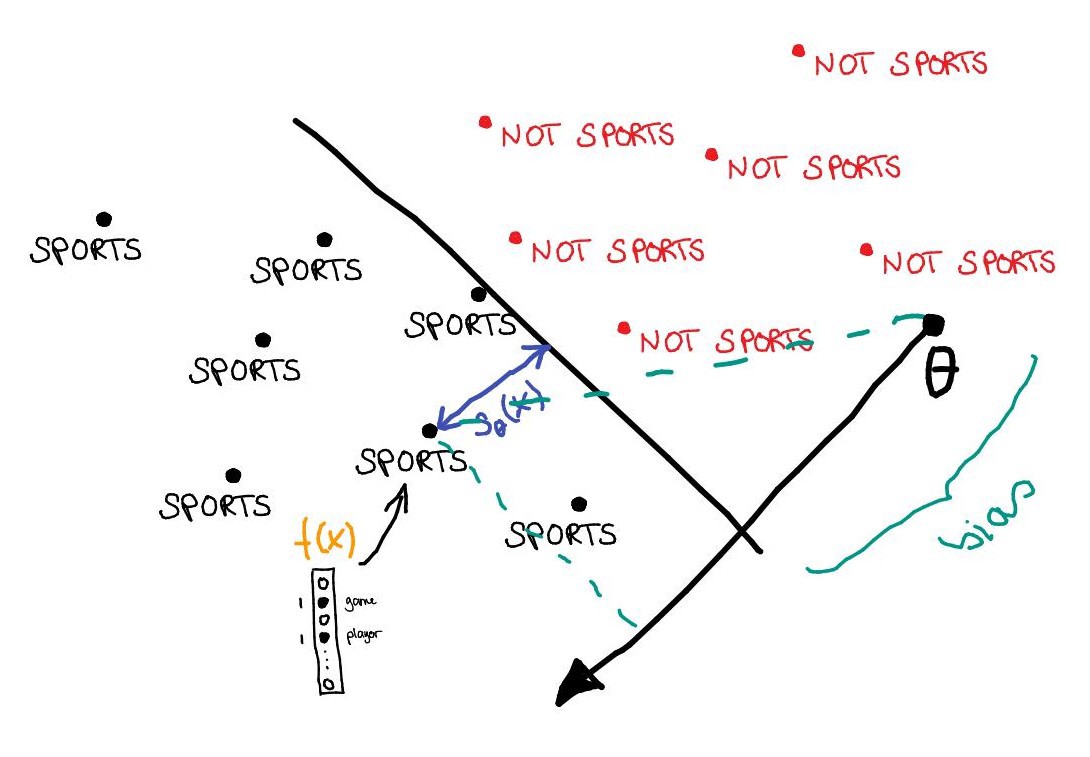 NOT SPORTS
NOT SPORTS
NOT SPORTS
SPORTS
SPORTS
NOT SPORTS
NOT SPORTS
SPORTS
NOT SPORTS
SPORTS
θ
sθ(x)
SPORTS
SPORTS
SPORTS
bias
f(x)
1 game
1 player